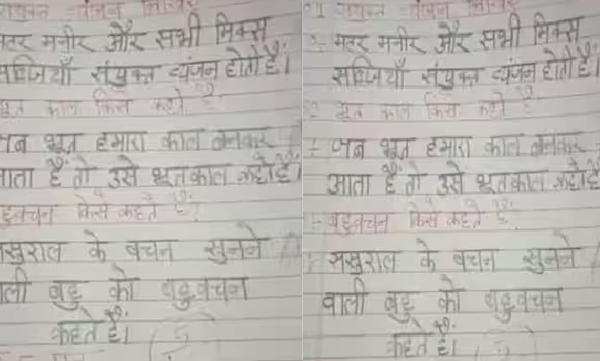 व्यंजन लिखिए
मटर मनीर और सभी मिक्स
सब्जियाँ संयुक्त व्यंजन होती हैं।
भूत काल किसे कहते है
जब भूत हमारा काल बनकर
आता है तो उसे भूतकाल कहते हैं
बहुवचन किसे कहते हैं?
ससुराल के वचन सुनने
वाली बहु को बहुवचन
कहते हैं।
व्यंजन लिखिए
मटर मनीर और सभी मिक्स
सब्जियाँ संयुक्त व्यंजन होती हैं।
भूत काल किसे कहते है
जब भूत हमारा काल बनकर
आता है तो उसे भूतकाल कहते हैं
बहुवचन किसे कहते हैं
ससुराल के वचन सुनने
वाली बहु को बहुवचन
कहते हैं।